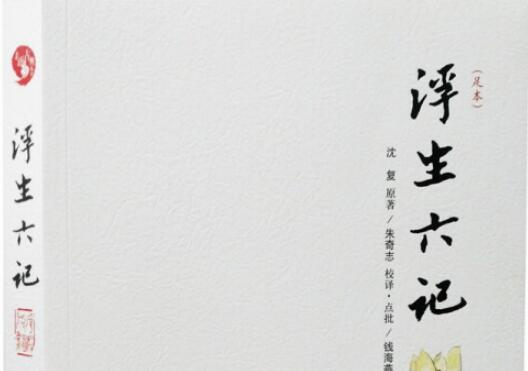 浮生六记
（足本）
浮生六记
沈复 原著/朱奇志 校译·点批/钱海燕